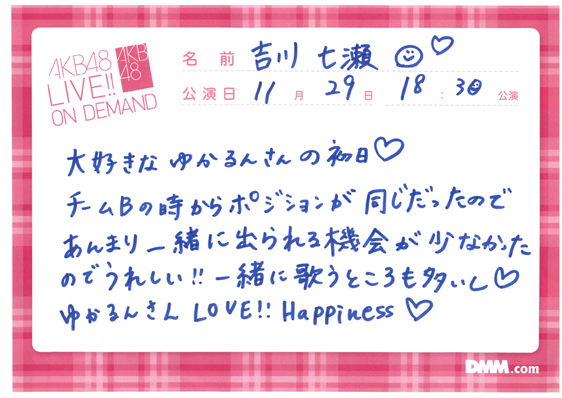 AKB48
LIVE!!
ON DEMAND
AKB
48
名前 吉川 七瀬
公演日 11月 29日 18:30 公演
大好きな ゆかるんさんの初日♡
チームBの時からポジションが同じだったので
あんまり一緒に出られる機会が少なかった
のでうれしい!! 一緒に歌うところも多いし♡
ゆかるんさん LOVE!! Happiness♡
DMM.com